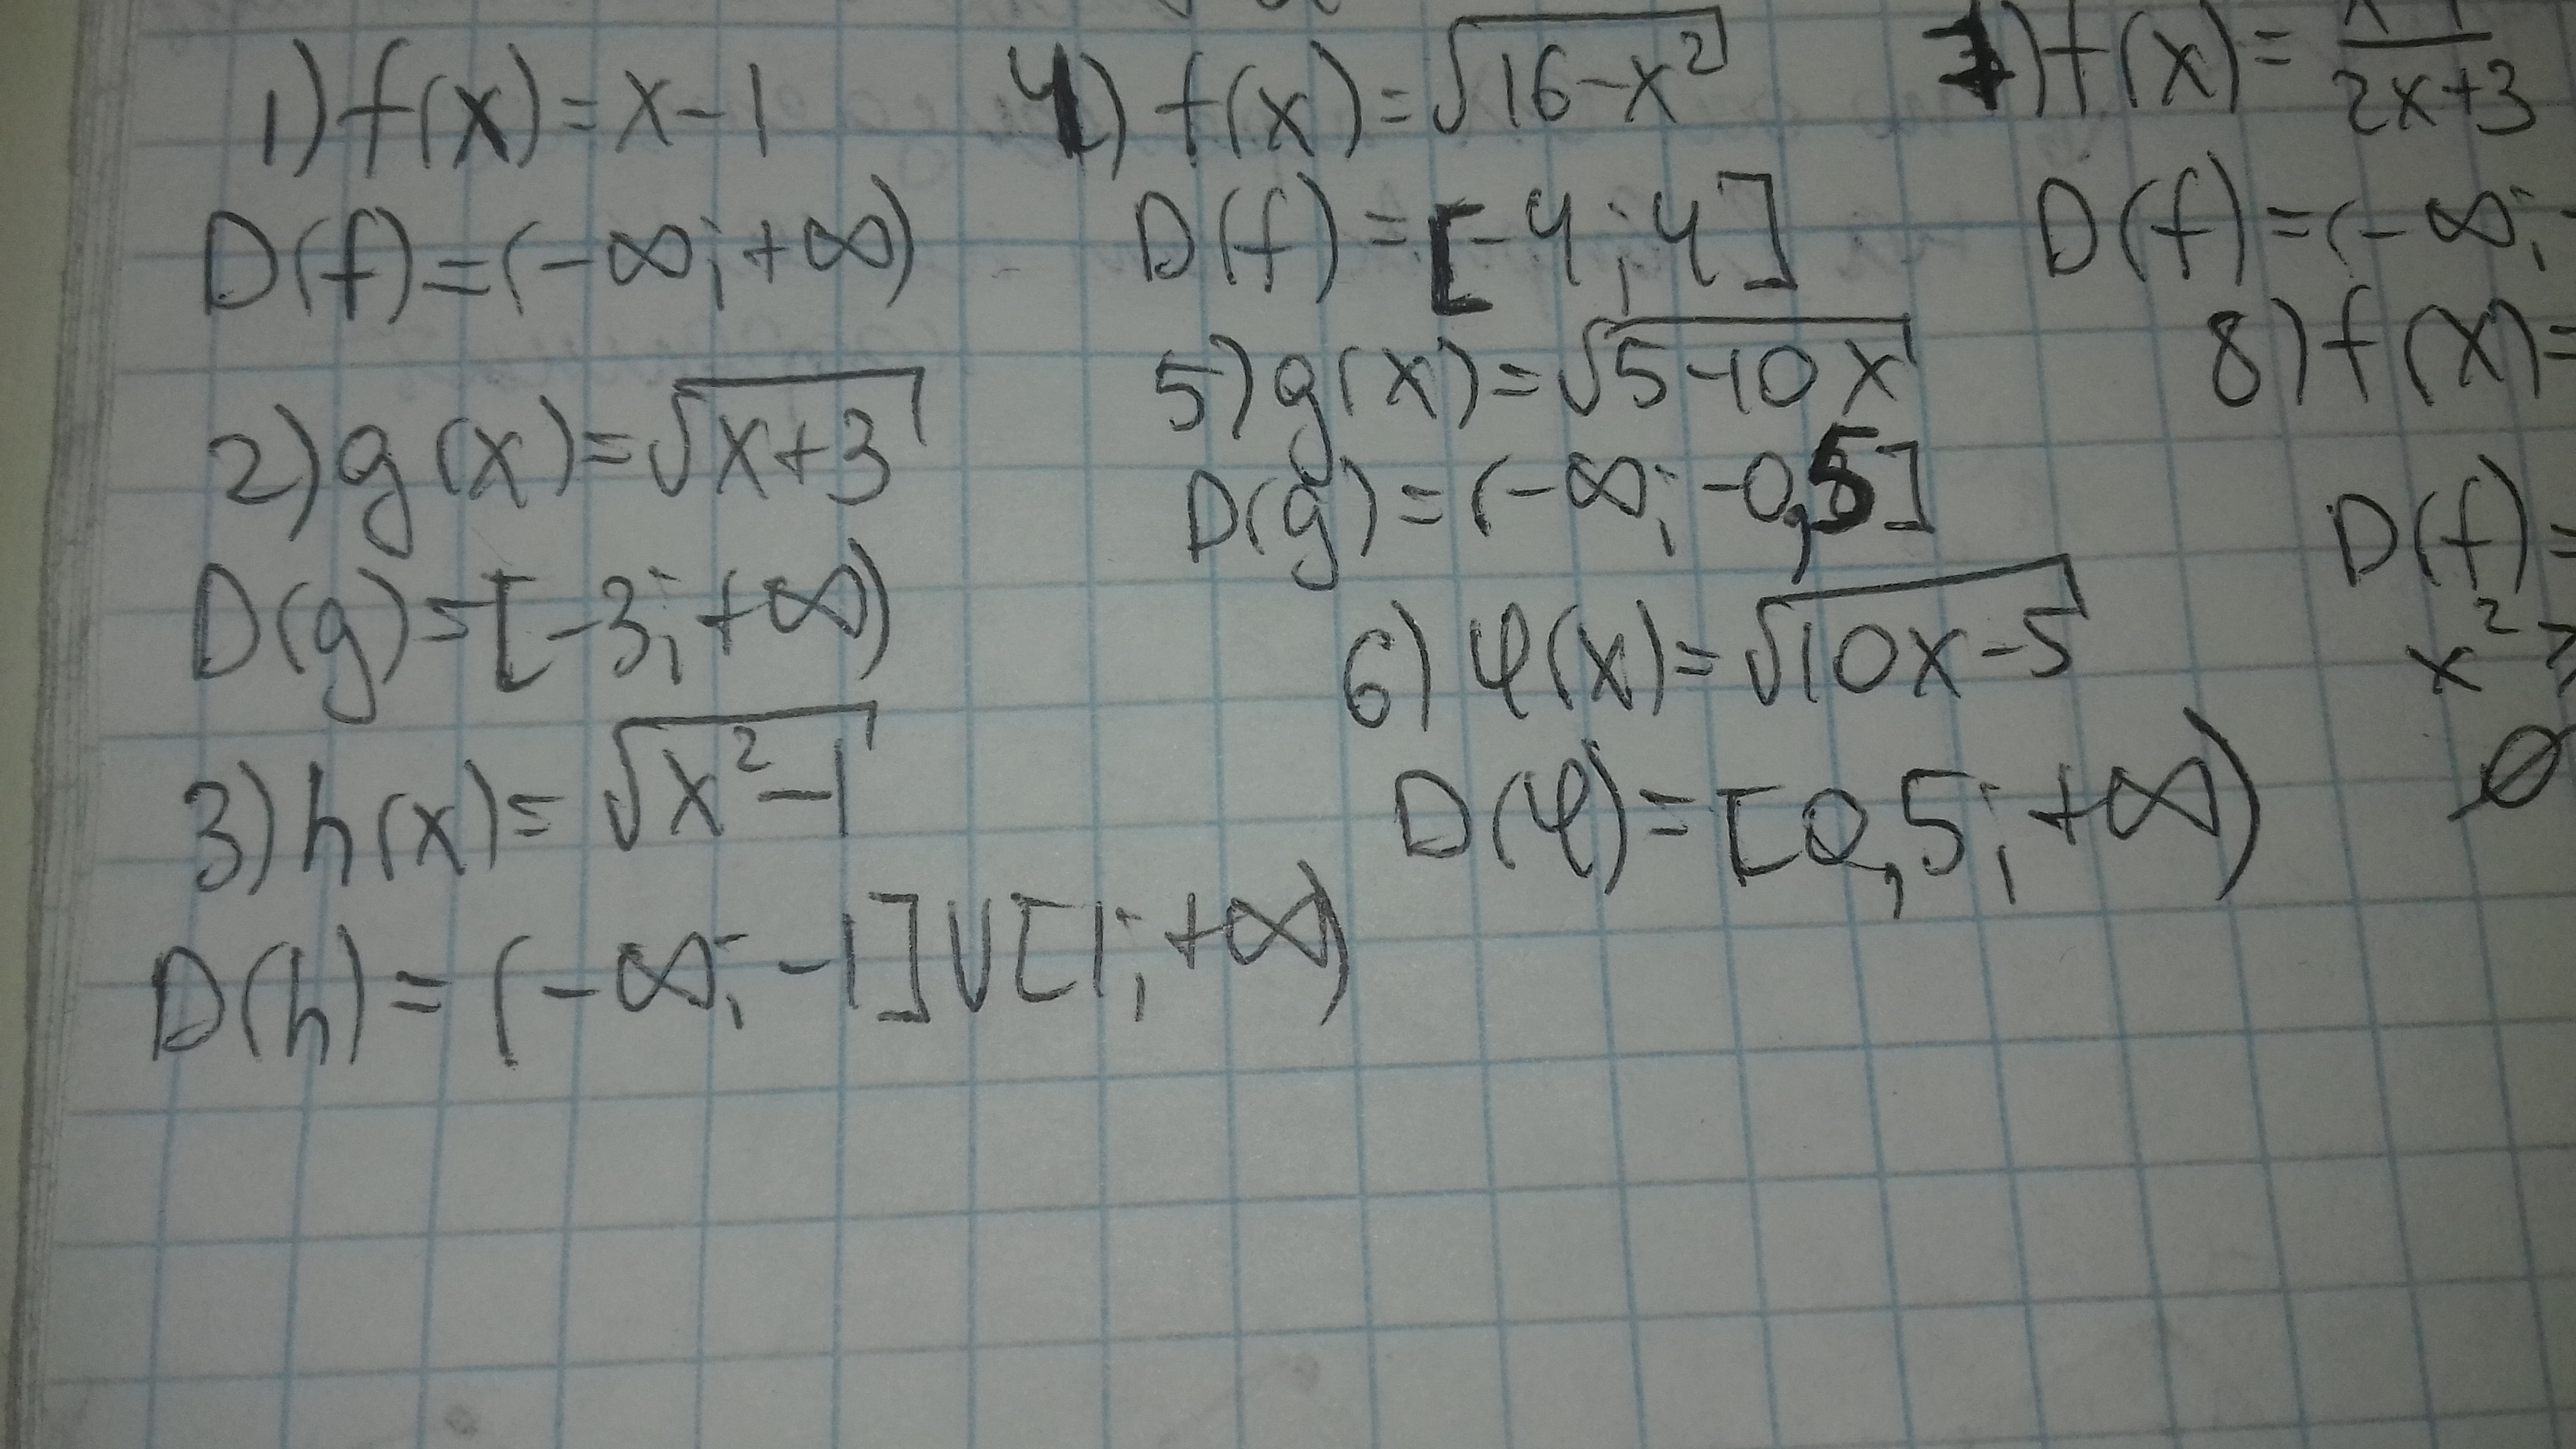 1) f(x)=x-1
D(f)=(-∞;+∞)
2) g(x)=√x+3
D(g)=[-3;+∞)
3) h(x)=√x²-1
D(h)=(-∞;-1]∪[1;+∞)
4) f(x)=√16-x²
D(f)=[-4;4]
5) g(x)=√5-10x
D(g)=(-∞;-0,5]
6) φ(x)=√10x-5
D(φ)=[0,5;+∞)
7) f(x)=
2x+3
D(f)=(-∞;
8) f(x)=
D(f)=
x²